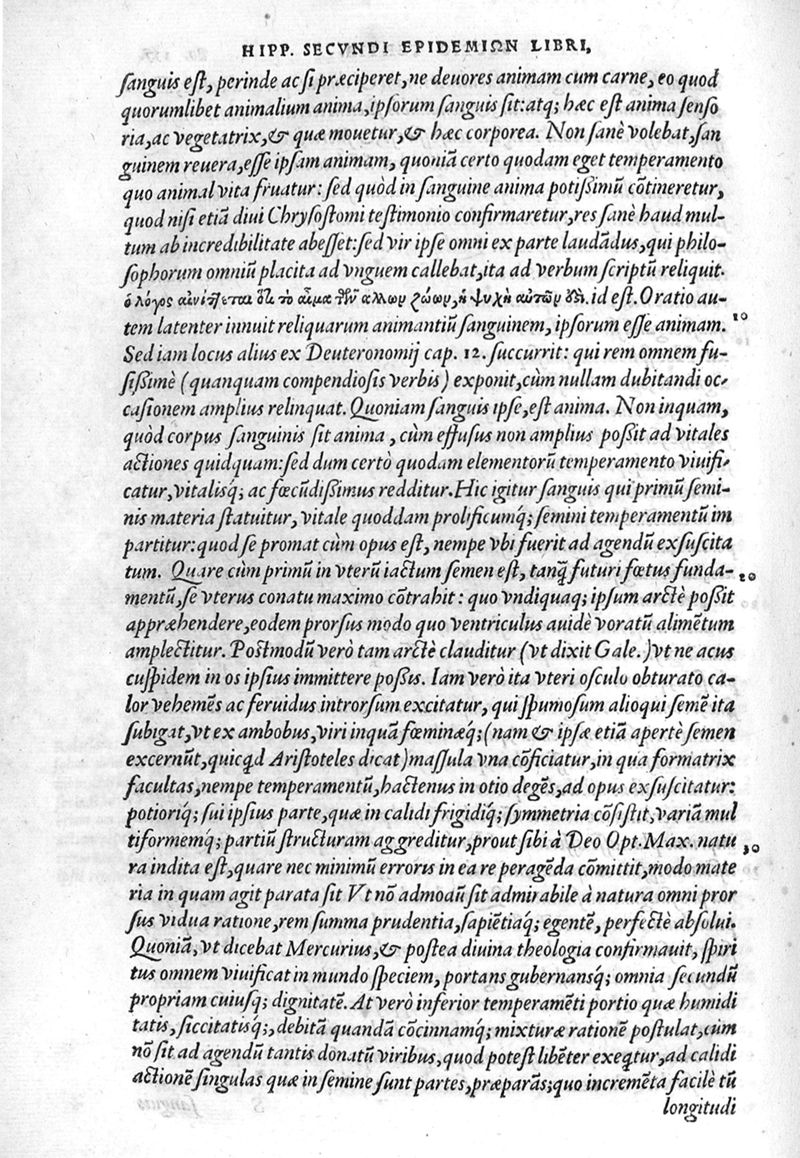 HIPP. SECVNDI EPIDEMIΩN LIBRI,
sanguis est, perinde ac si præciperet, ne deuores animam cum carne, eo quod
quorumlibet animalium anima, ipsorum sanguis sit: atq; hæc est anima senso
ria, ac vegetatrix, & quæ mouetur, & hæc corporea. Non sanè volebat, san
guinem reuera, esse ipsam animam, quoniā certo quodam eget temperamento
quo animal vita fruatur: sed quòd in sanguine anima potissimū cōtineretur,
quod nisi etiā diui Chrysostomi testimonio confirmaretur, res sanè haud mul-
tum ab incredibilitate abesset: sed vir ipse omni ex parte laudādus, qui philo-
sophorum omniū placita ad vnguem callebat, ita ad verbum scriptū reliquit.
ὁ λόγος αἰνίττεται ὅτι τὸ αἷμα τῶν ἄλλων ζώων, ἡ ψυχὴ αὐτῶν ὅτι. id est. Oratio au-
tem latenter innuit reliquarum animantiū sanguinem, ipsorum esse animam. 10
Sed iam locus alius ex Deuteronomij cap. 12. succurrit: qui rem omnem fu-
sissimè (quanquam compendiosis verbis) exponit, cùm nullam dubitandi oc-
casionem amplius relinquat. Quoniam sanguis ipse, est anima. Non inquam,
quòd corpus sanguinis sit anima, cùm effusus non amplius possit ad vitales
actiones quidquam: sed dum certò quodam elementorū temperamento viuifi-
catur, vitalisq́; ac fœcūdissimus redditur. Hic igitur sanguis qui primū semi-
nis materia statuitur, vitale quoddam prolificumq́; semini temperamentū im
partitur: quod se promat cùm opus est, nempe vbi fuerit ad agendū exsuscita
tum. Quare cùm primū in vterū iactum semen est, tanq̄ futuri fœtus funda- 20
mentū, se vterus conatu maximo cōtrahit: quo vndiquaq; ipsum arctè possit
appræhendere, eodem prorsus modo quo ventriculus auidè voratū alimētum
amplectitur. Postmodū verò tam arctè clauditur (vt dixit Gale.) vt ne acus
cuspidem in os ipsius immittere possis. Iam verò ita vteri osculo obturato ca-
lor vehemēs ac feruidus introrsum excitatur, qui spumosum alioqui semē ita
subigat, vt ex ambobus, viri inquā fœminæq́; (nam & ipsæ etiā apertè semen
excernūt, quicq̄d Aristoteles dicat) massula vna cōficiatur, in qua formatrix
facultas, nempe temperamentū, hactenus in otio degēs, ad opus exsuscitatur:
potioriq́; sui ipsius parte, quæ in calidi frigidiq́; symmetria cōsistit, variā mul
tiformemq́; partiū structuram aggreditur, prout sibi à Deo Opt. Max. natu 30
ra indita est, quare nec minimū erroris in ea re peragēda cōmittit, modo mate
ria in quam agit parata sit Vt nō admodū sit admirabile à natura omni pror
sus vidua ratione, rem summa prudentia, sapiētiaq́; egentē, perfectè absolui.
Quoniā, vt dicebat Mercurius, & postea diuina theologia confirmauit, spiri
tus omnem viuificat in mundo speciem, portans gubernansq́; omnia secundū
propriam cuiusq; dignitatē. At verò inferior temperamēti portio quæ humidi
tatis, siccitatisq́;, debitā quandā cōcinnamq́; mixturæ rationē postulat, cùm
nō sit ad agendū tantis donatū viribus, quod potest libēter exeq̄tur, ad calidi
actionē singulas quæ in semine sunt partes, præparās; quo incremēta facilè tū
longitudi